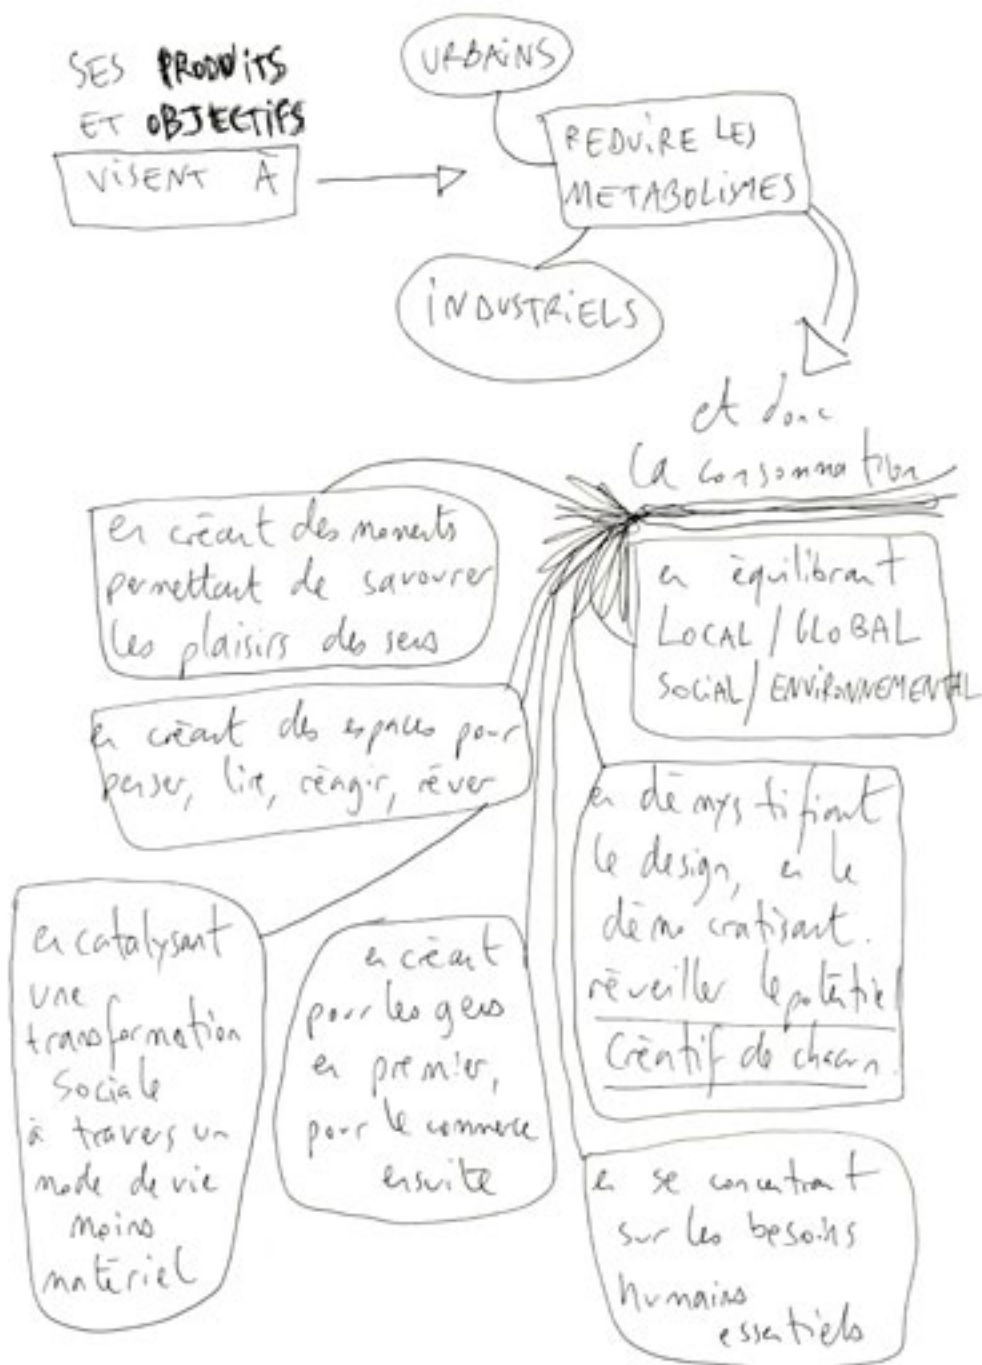 SES PRODUITS
ET OBJECTIFS
VISENT À
URBAINS
REDUIRE LES
METABOLISMES
INDUSTRIELS
et donc
la consommation
en créant des moments
permettant de savourer
les plaisirs des sens
en équilibrant
LOCAL / GLOBAL
SOCIAL / ENVIRONNEMENTAL
en créant des espaces pour
penser, lire, réagir, rêver
en démystifiant
le design, en le
démocratisant.
réveiller le potentiel
créatif de chacun.
en catalysant
une
transformation
sociale
à travers un
mode de vie
moins
matériel
en créant
pour les gens
en premier,
pour le commerce
ensuite
en se concentrant
sur les besoins
humains
essentiels